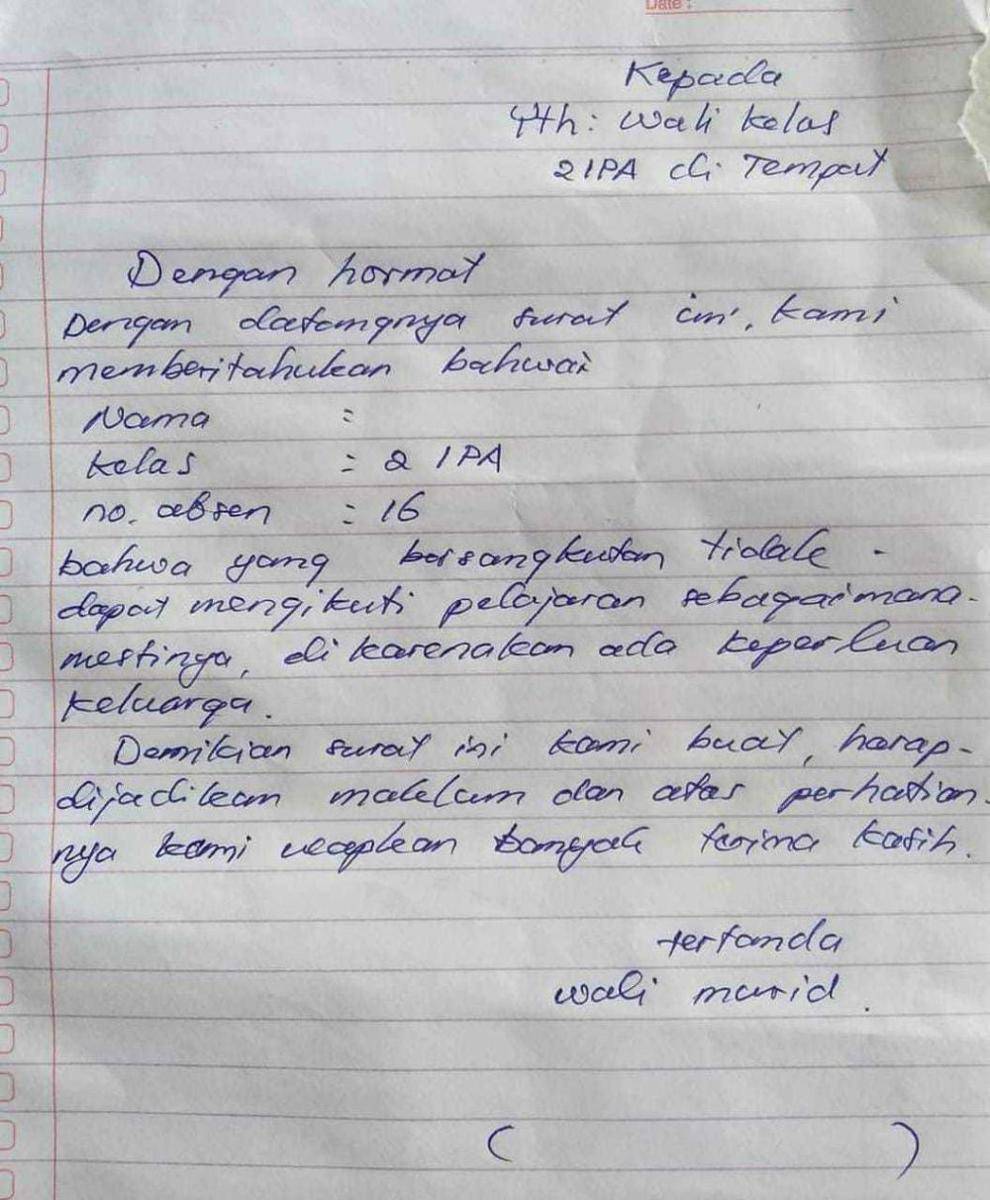 Date:
Kepada
Yth: Wali kelas
2 IPA di Tempat
Dengan hormat
Dengan datangnya surat ini, kami
memberitahukan bahwa:
Nama :
kelas : 2 IPA
no. absen : 16
bahwa yang bersangkutan tidak -
dapat mengikuti pelajaran sebagaimana-
mestinya, di karenakan ada keperluan
keluarga.
Demikian surat ini kami buat, harap-
dijadikan maklum dan atas perhatian-
nya kami ucapkan banyak terima kasih.
tertanda
wali murid.
( )